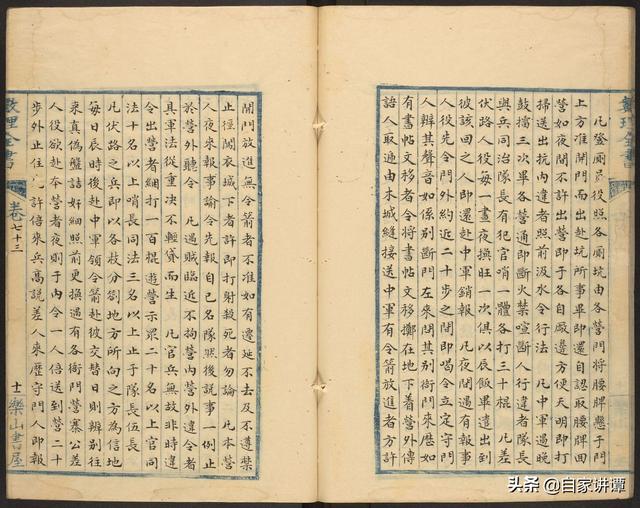 戴理全書
凡登厠員役照各厠坑由各營門將腰牌懸于門
上方准開門而出赴坑所事畢即還自認取腰牌回
營如夜間不許出營即于各自厰邊方便天明即打
掃送出坑內違者照前汲水令行法 凡中軍遇晚
鼓擂三次畢各營通即斷火禁喧斷人行違者隊長
與兵同治隊長有犯官哨一體各打三十棍 凡差
伏路人役每一晝夜換班一次俱以辰飯畢遣出到
彼該回之人即還赴中軍銷報 凡夜間遇有報事
人役先令門外約近二十步之間即喝令立定守門
人辨其聲音如係別斷門左來閉其別衙門來歷如
有書帖文移者令將書帖文移擲在地下着營外傳
語人取過由木城縫接送中軍有令箭放進者方許
開門放進無令箭者不准如有遷延不去及不遵禁
止徑闖衣城下者許即打射殺死者勿論 凡本營
人夜來報事諭令先報自己名隊然後説事一例止
於營外聽令 凡遇賊臨近不拘營內營外違令者
具軍法從重決不輕貸而生 凡官兵無故非時違
令出營者綑打一百棍遊營示眾二十名以上官同
法十名以上哨長同法三名以上止于隊長伍長
凡伏路之兵即以各枝分劄地方所向之方為信地
每日辰時後赴中軍領令箭赴彼交替日則辨別往
來真偽盤詰好細照前更換遇有各衙門營寨公差
人役欲赴本營者夜則于內令一人倍送到營二十
步外止住許倍來兵高説差人來歷守門人即報
理全書
卷七十三
十一
樂山書屋
头条 @自家讲谭